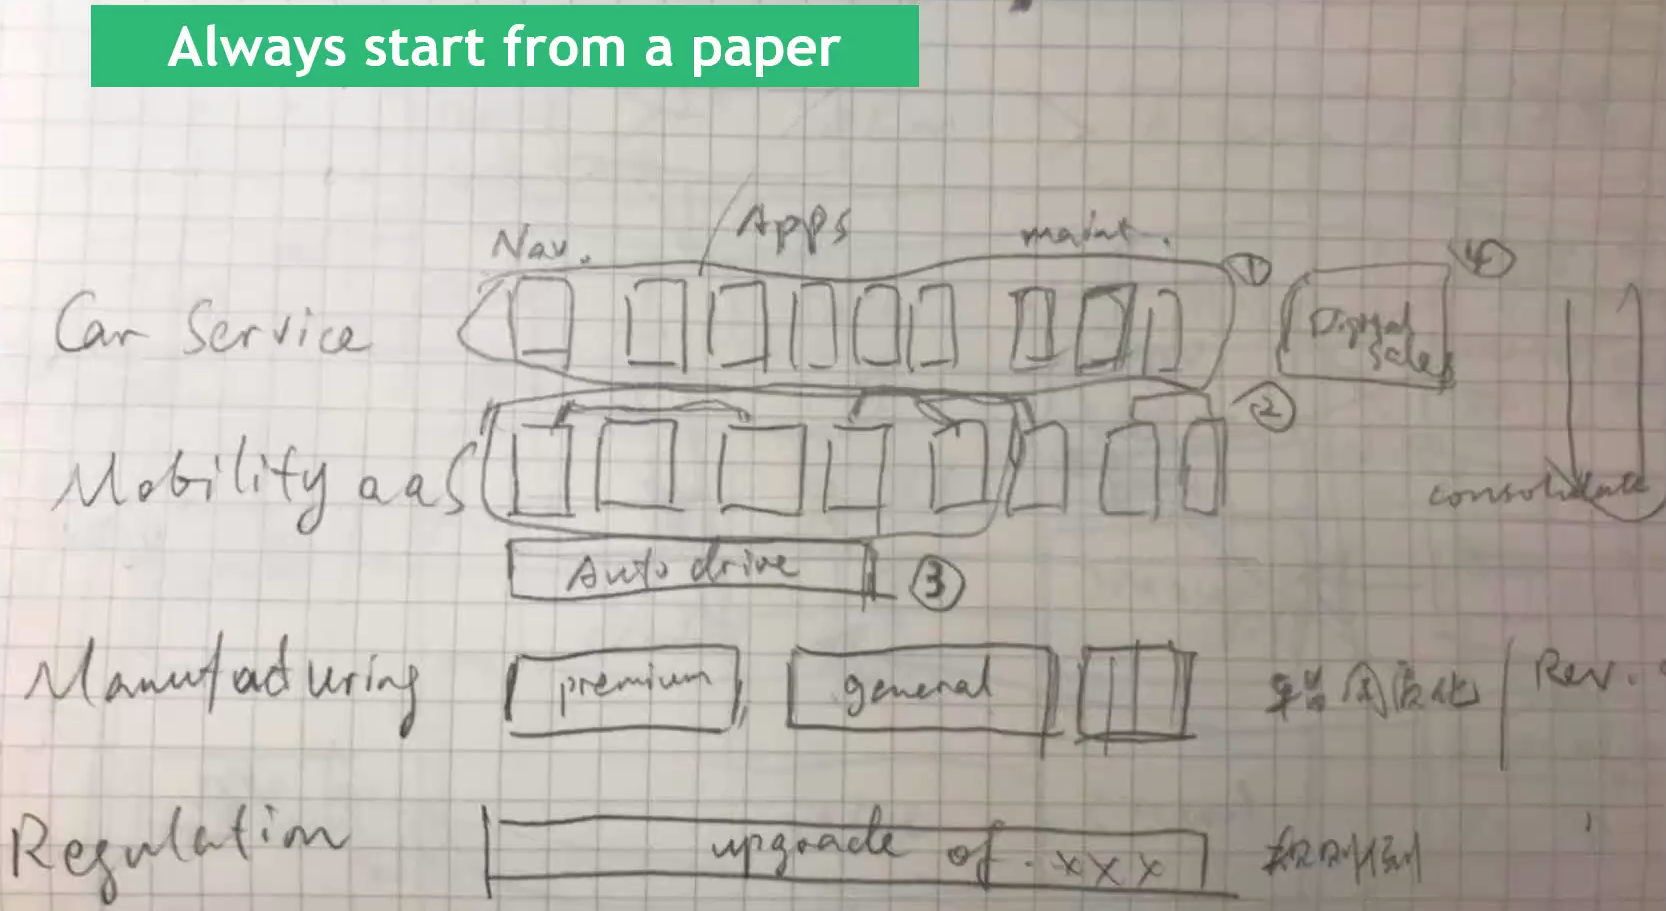 Always start from a paper
Nav. Apps maint.
Car Service ① Digital sales ④
Mobility aaS ② consolidate
Auto drive ③
Manufacturing premium general Rev.
Regulation upgrade of . xxx